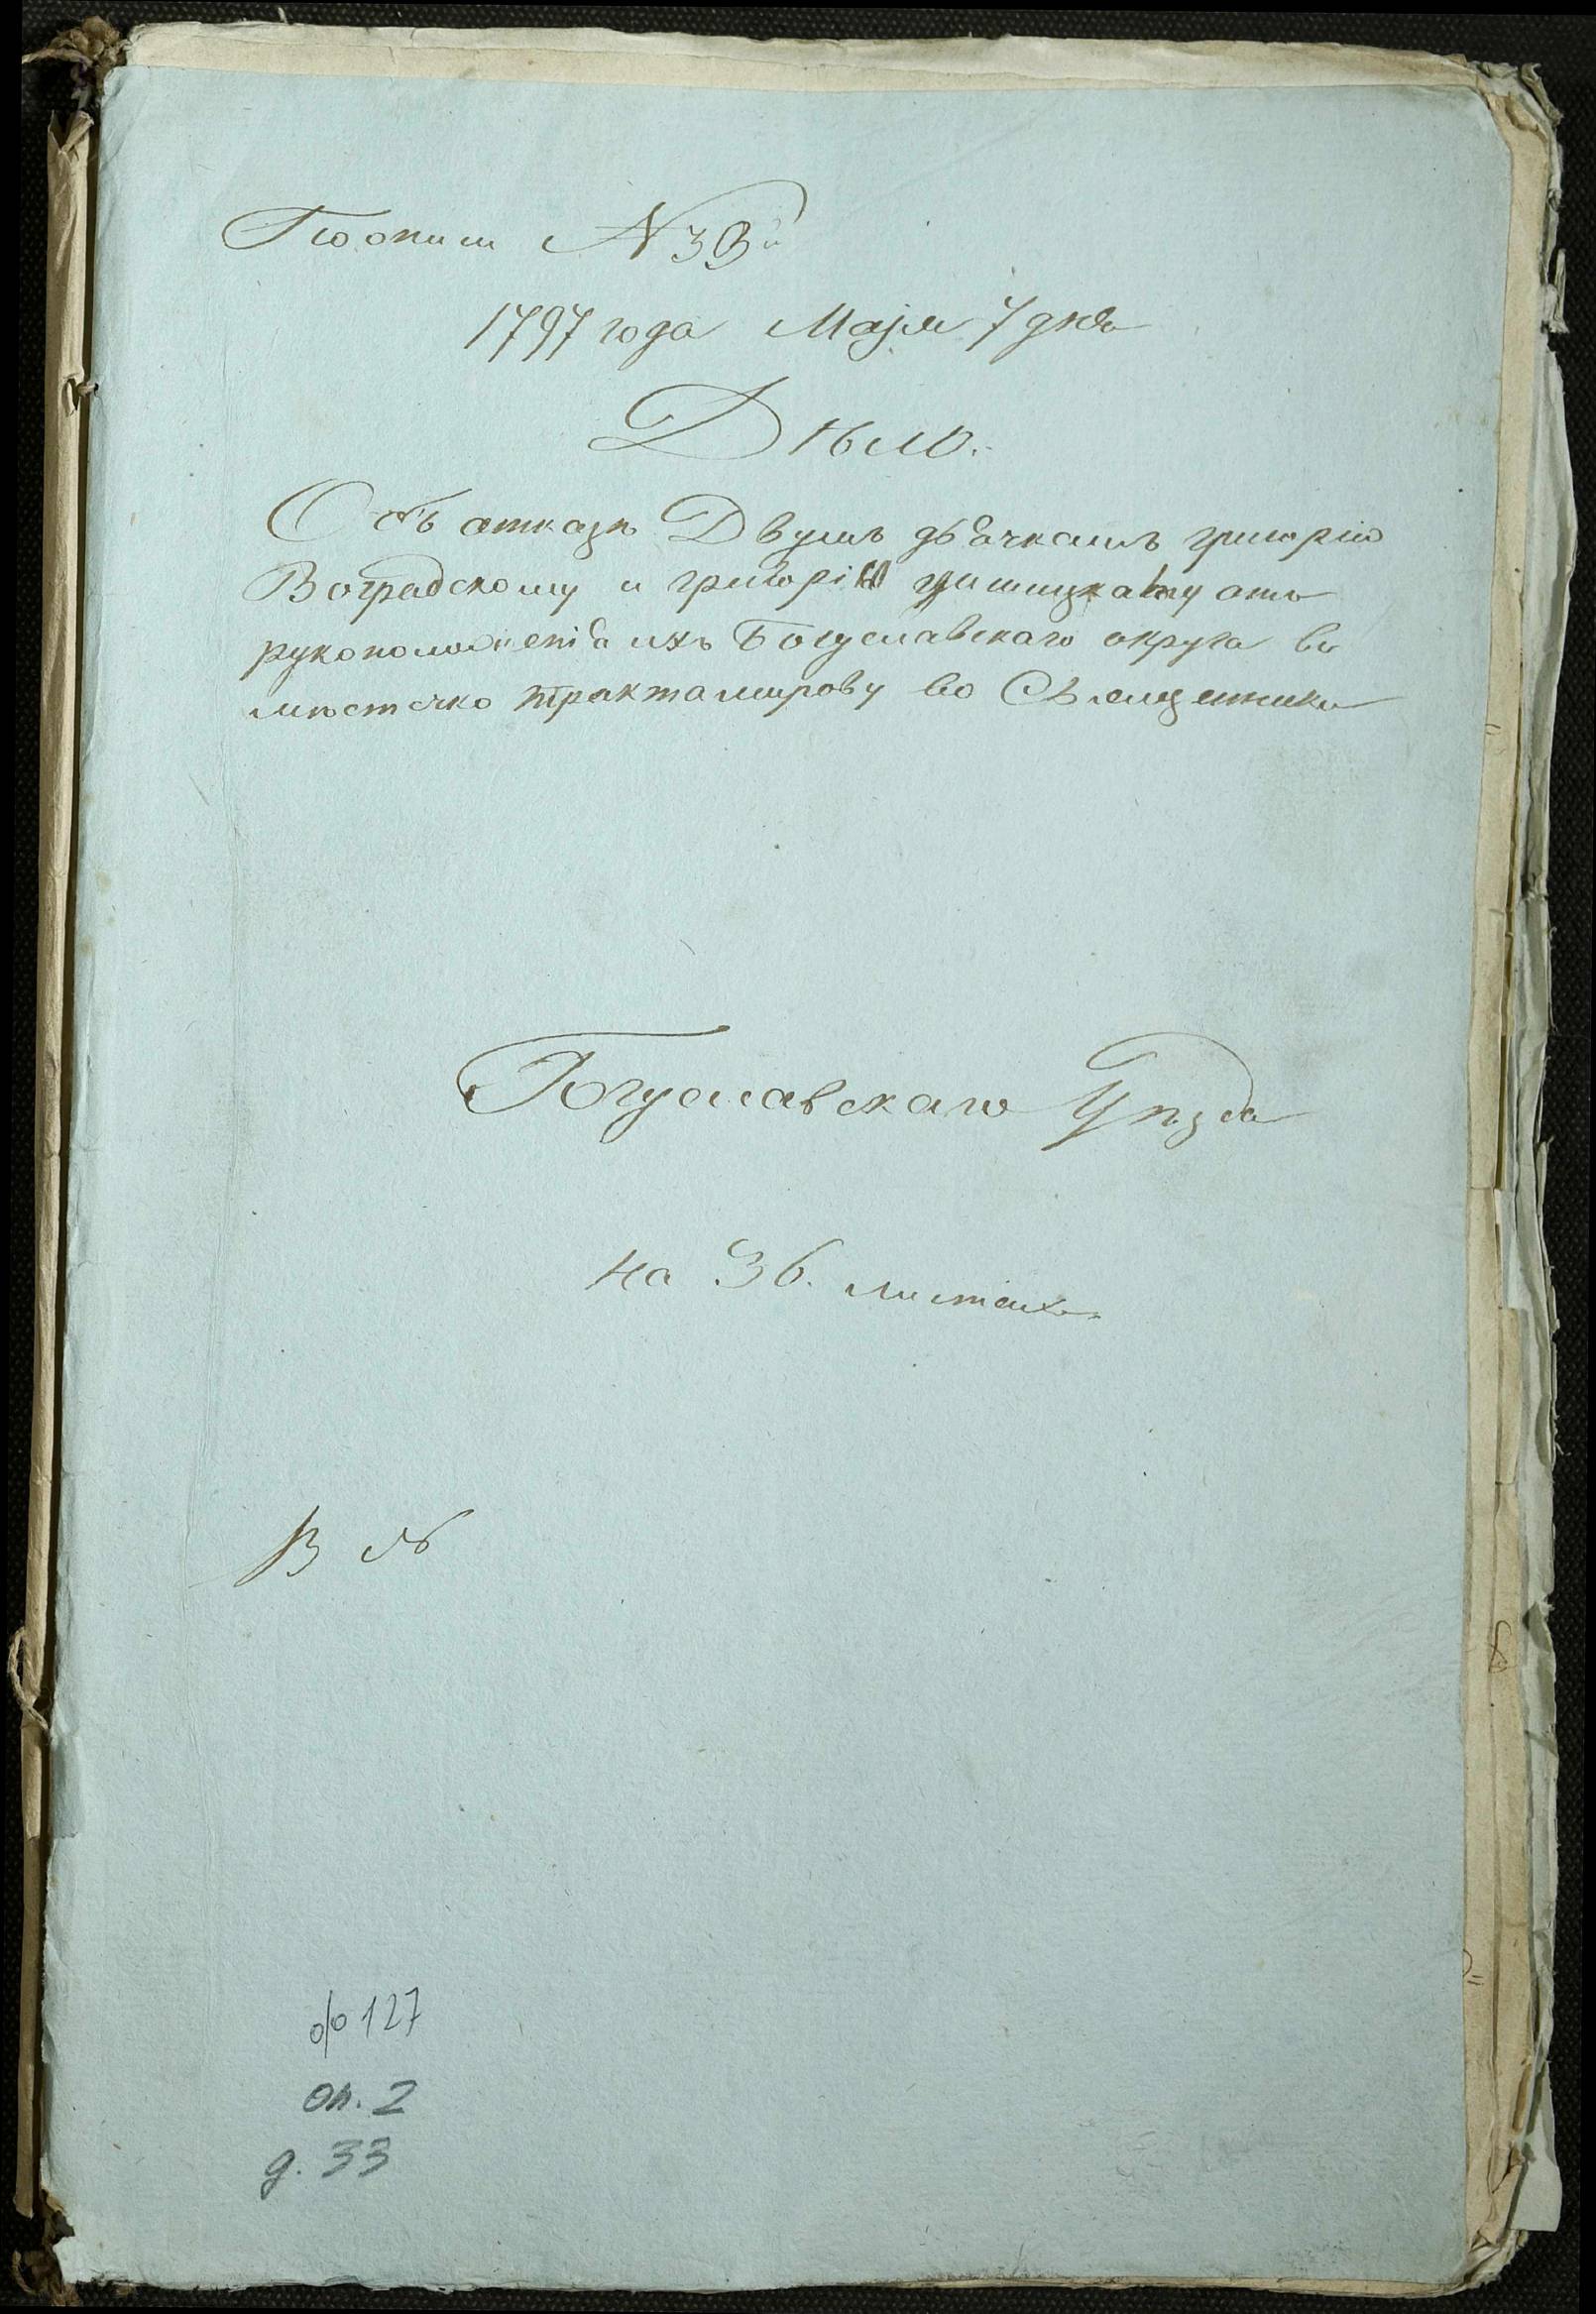 По описи № 33й
1797 года Маія 7 дня
Дѣло.
Объ отказѣ Двумъ дьячкамъ григорію
Воградскому и григорію от
рукоположенія ихъ Богуславскаго округа въ
мѣстечко трактамирову во Священники
Богуславскаго Уѣзда
на 36. листахъ
В №
ф 127
оп. 2
д. 33